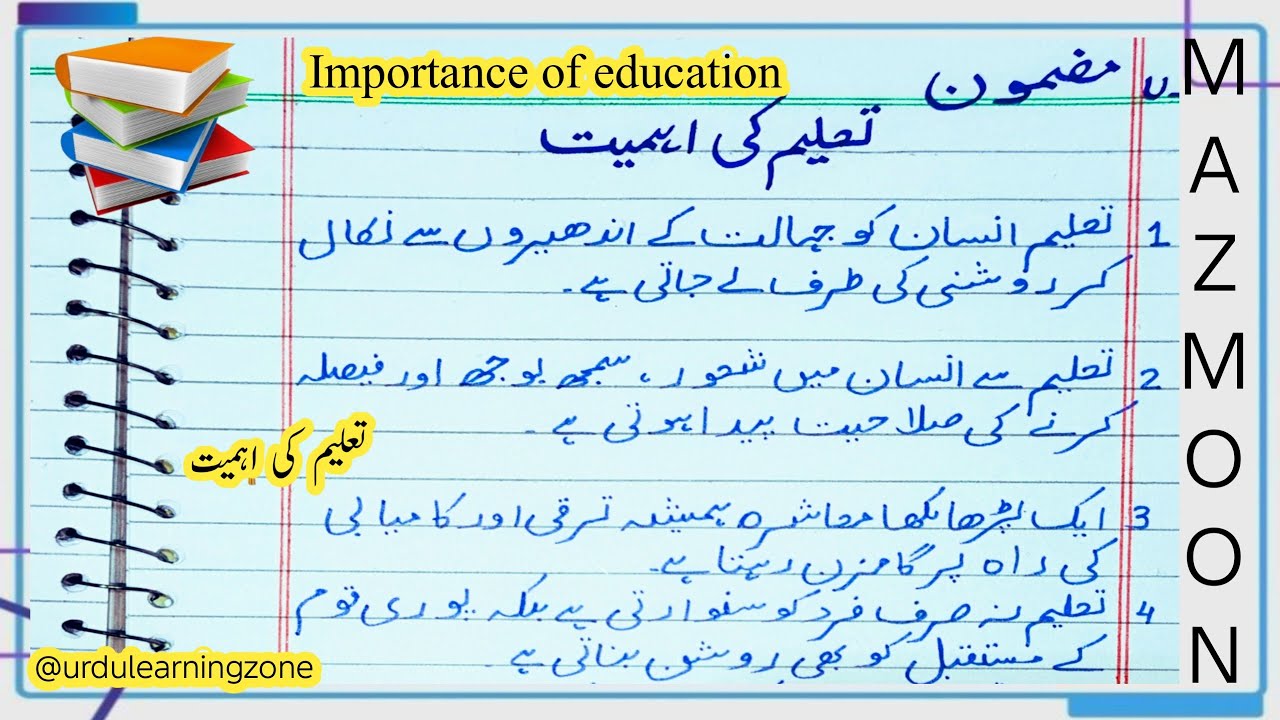 Importance of education
مضمون
تعلیم کی اہمیت
1 تعلیم انسان کو جہالت کے اندھیروں سے نکال
کر روشنی کی طرف لے جاتی ہے۔
2 تعلیم سے انسان میں شعور، سمجھ بوجھ اور فیصلہ
کرنے کی صلاحیت پیدا ہوتی ہے۔
3 ایک پڑھا لکھا معاشرہ ہمیشہ ترقی اور کامیابی
کی راہ پر گامزن رہتا ہے۔
4 تعلیم نہ صرف فرد کو سنوارتی ہے بلکہ پوری قوم
کے مستقبل کو بھی روشن بناتی ہے۔
تعلیم کی اہمیت
@urdulearningzone
MAZMOON